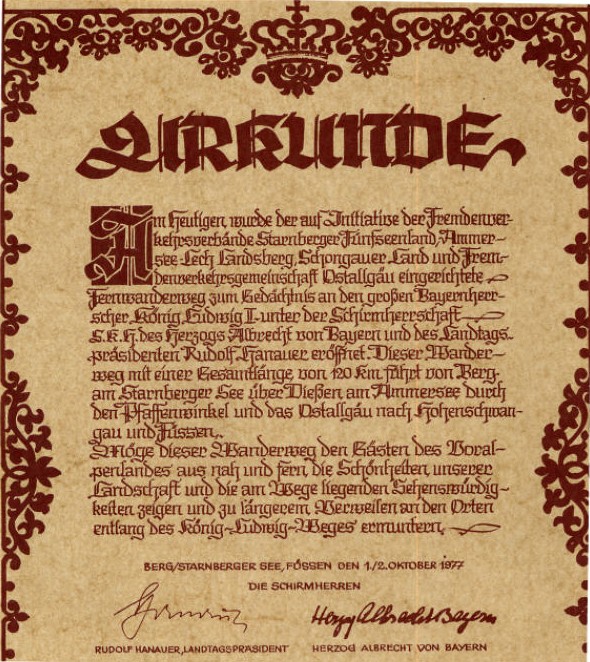 URKUNDE
Am heutigen, wurde der auf Initiative der Fremdenver-
kehrsverbände Starnberger Fünfseenland, Ammer-
see-Lech, Landsberg, Schongauer Land und Frem-
denverkehrsgemeinschaft Ostallgäu eingerichtete
Fernwanderweg zum Gedächtnis an den großen Bayernherr-
scher, König Ludwig II. unter der Schirmherrschaft
S.K.H. des Herzogs Albrecht von Bayern und des Landtags-
präsidenten Rudolf Hanauer eröffnet. Dieser Wander-
weg mit einer Gesamtlänge von 120 Km führt von Berg
am Starnberger See über Dießen am Ammersee durch
den Pfaffenwinkel und das Ostallgäu nach Hohenschwan-
gau und Füssen.
Möge dieser Wanderweg den Gästen des Voral-
penlandes aus nah und fern die Schönheiten unserer
Landschaft und die am Wege liegenden Sehenswürdig-
keiten zeigen und zu längerem Verweilen an den Orten
entlang des König-Ludwig-Weges ermuntern.
BERG/STARNBERGER SEE, FÜSSEN DEN 1./2. OKTOBER 1977
DIE SCHIRMHERREN
Hanauer Herzog Albrecht Bayern
RUDOLF HANAUER, LANDTAGSPRÄSIDENT HERZOG ALBRECHT VON BAYERN